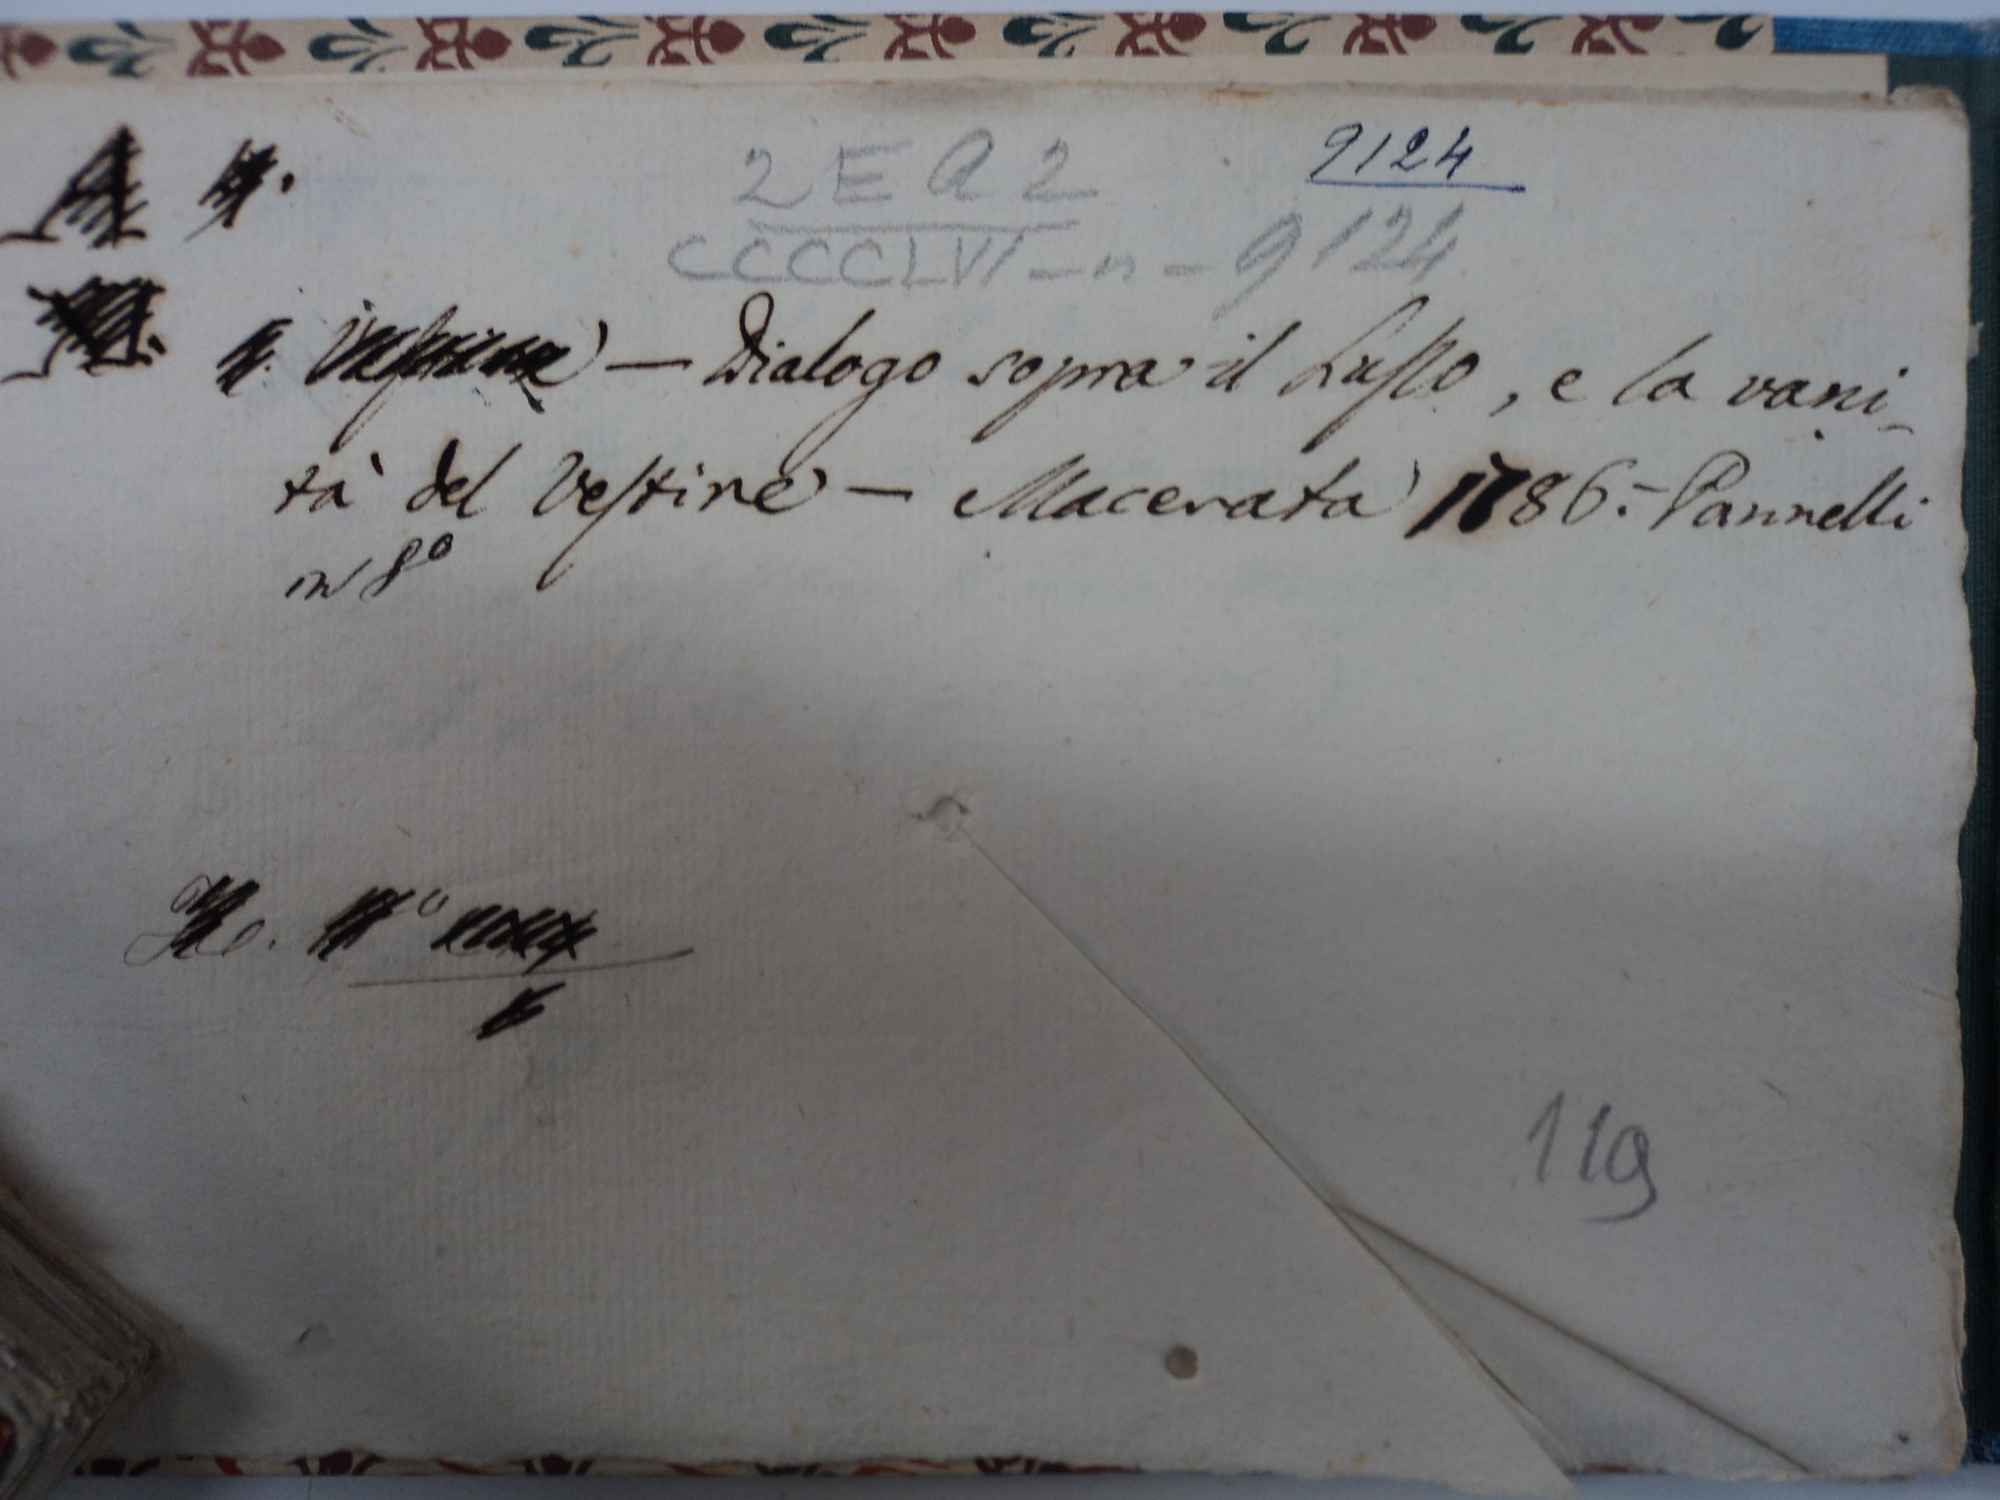 2 E Q 2
9124
CCCCLVI – n – 9124
— Dialogo sopra il Lusso, e la vani-
tà del Vestire — Macerata 1786. – Pannelli
in 8º
119